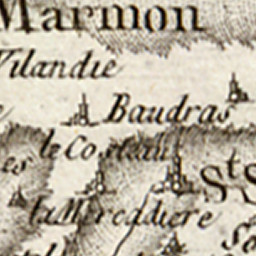 Marmon
Vilandie
Baudras
le Costeau
es
St S
la Mercadiere